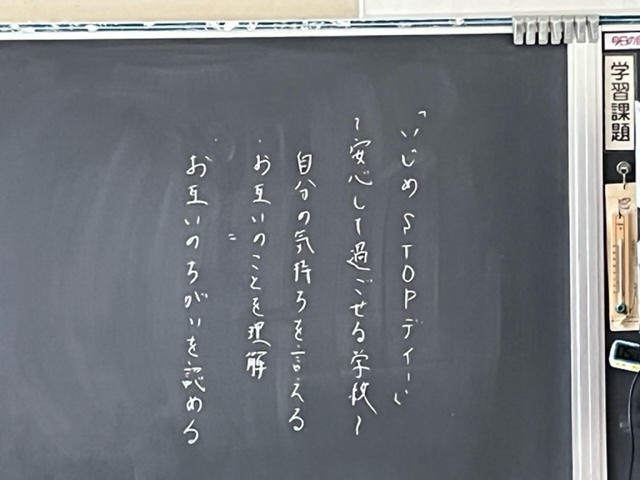 学習課題
「いじめSTOPデイー」
〜安心して過ごせる学校〜
自分の気持ちを言える
・お互いのことを理解
＝
・お互いのちがいを認める